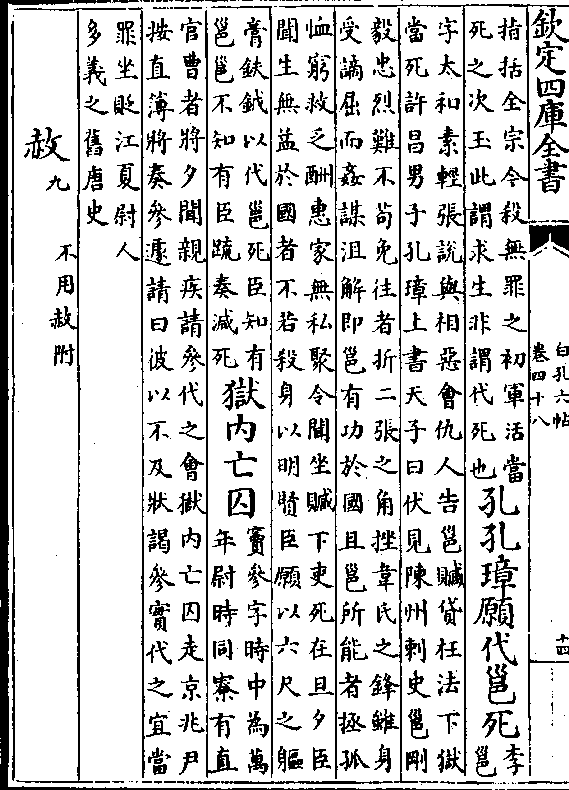 欽定四庫全書
白孔六帖
卷四十八
十四
指括全宗今殺無罪之初軍活當
死之次玉此謂求生非謂代死也
孔孔璋願代邕死
李
邕
字太和素輕張說與相惡會仇人告邕贓貸枉法下獄
當死許昌男子孔璋上書天子曰伏見陳州刺史邕剛
毅忠烈難不苟免往者折二張之角挫韋氏之鋒雖身
受謫屈而姦謀沮解即邕有功於國且邕所能者拯孤
恤窮救乏酬惠家無私聚今聞坐贓下吏死在旦夕臣
聞生無益於國者不若殺身以明賢臣願以六尺之軀
膏鈇鉞以代邕死臣知有
邕邕不知有臣疏奏減死
獄内亡囚
竇參字時中為萬
年尉時同寮有直
官曹者將夕聞親疾請參代之會獄内亡囚走京兆尹
按直簿將奏參遽請曰彼以不及狀謁參實代之宜當
罪坐貶江夏尉人
多義之舊唐史
赦九
不用赦附